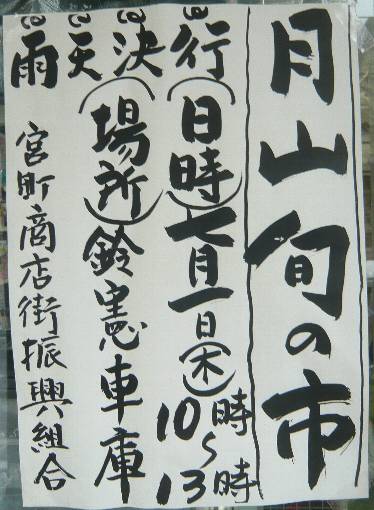 月山旬の市
雨天決行
(日時)七月一日(木)10時〜13時
(場所)鈴憲車庫
宮町商店街振興組合